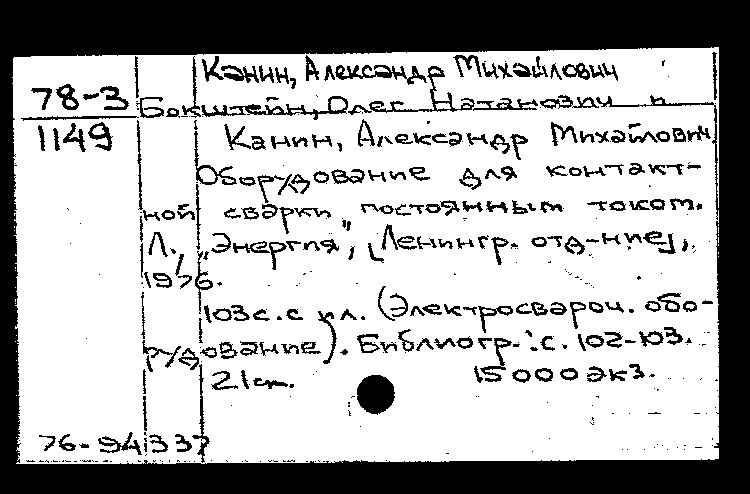 Канин, Александр Михайлович
78-3
Бокштейн, Олег Натанович и
1149
Канин, Александр Михайлович
Оборудование для контакт-
ной сварки постоянным током.
Л., „Энергия", [Ленингр. отд-ние],
1976.
103с. с ил. (Электросвароч. обо-
рудование). Библиогр.: с. 102-103.
21см. 15000экз.
76-94337